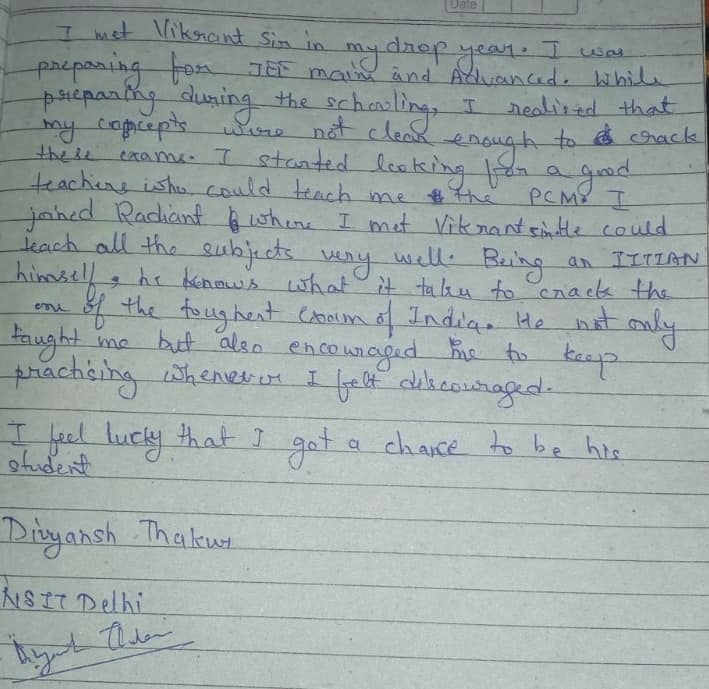 Date
I met Vikrant Sir in my drop year. I was
preparing for JEE mains and Advanced. While
preparing during the schooling, I realised that
my concepts were not clear enough to crack
these exams. I started looking for a good
teachers who could teach me the PCM. I
joined Radiant where I met Vikrant sir. He could
teach all the subjects very well. Being an IITIAN
himself, he knows what it takes to crack the
one of the toughest exam of India. He not only
taught me but also encouraged me to keep
practising whenever I felt discouraged.
I feel lucky that I got a chance to be his
student
Divyansh Thakur
NSIT Delhi